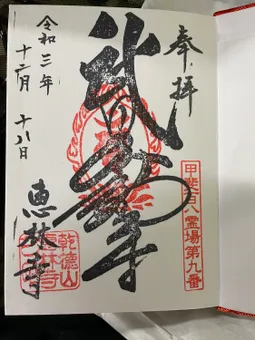 奉拝
甲斐百八霊場第九番
武田不動尊
令和三年
十二月十八日
恵林寺
乾徳山
恵林寺